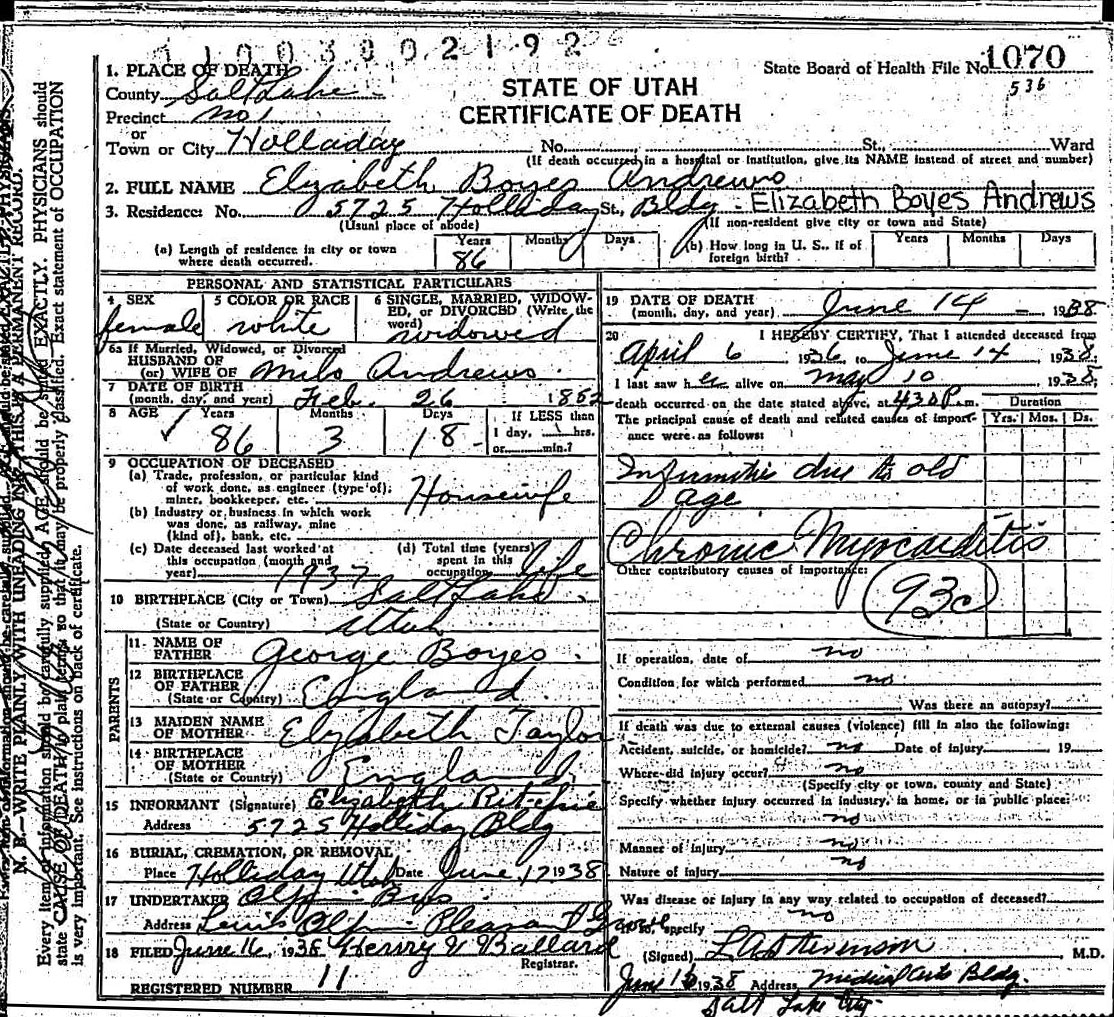 11003002192
State Board of Health File No. 1070
536
STATE OF UTAH
CERTIFICATE OF DEATH
1. PLACE OF DEATH
County Salt Lake
Precinct No 1
or
Town or City Holladay No. St., Ward
(If death occurred in a hospital or institution, give its NAME instead of street and number)
2. FULL NAME Elizabeth Boyes Andrews
3. Residence: No. 5725 Holliday St., Bldg - Elizabeth Boyes Andrews
(Usual place of abode) (If non-resident give city or town and State)
(a) Length of residence in city or town where death occurred. Years 86 Months Days (b) How long in U. S., if of foreign birth? Years Months Days
PERSONAL AND STATISTICAL PARTICULARS
4 SEX female
5 COLOR OR RACE white
6 SINGLE, MARRIED, WIDOWED, or DIVORCED (Write the word) widowed
6a If Married, Widowed, or Divorced
HUSBAND OF
(or) WIFE OF Milo Andrews
7 DATE OF BIRTH
(month, day, and year) Feb. 26 1852
8 AGE Years 86 Months 3 Days 18 If LESS than 1 day, hrs. or min.?
9 OCCUPATION OF DECEASED
(a) Trade, profession, or particular kind
of work done, as engineer (type of);
miner, bookkeeper, etc. Housewife
(b) Industry or business in which work
was done, as railway, mine
(kind of), bank, etc.
(c) Date deceased last worked at this occupation (month and year) 1937 (d) Total time (years) spent in this occupation life
10 BIRTHPLACE (City or Town) Salt Lake
(State or Country) Utah
PARENTS
11. NAME OF
FATHER George Boyes
12 BIRTHPLACE
OF FATHER
(State or Country) England
13 MAIDEN NAME
OF MOTHER Elizabeth Taylor
14 BIRTHPLACE
OF MOTHER
(State or Country) England
15 INFORMANT (Signature) Elizabeth Ritchie
Address 5725 Holliday Bldg
16 BURIAL, CREMATION, OR REMOVAL
Place Holliday Utah Date June 17 1938
17 UNDERTAKER Olpin Bros
Address Pleasant Grove
18 FILED June 16, 1938 Henry V Ballard
Registrar.
REGISTERED NUMBER 11
19 DATE OF DEATH
(month, day, and year) June 14 - 1938
20 I HEREBY CERTIFY, That I attended deceased from
April 6 1936 to June 14 1938
I last saw her alive on May 10 1938
death occurred on the date stated above, at 4 30 P.m.
Duration
The principal cause of death and related causes of importance were as follows: Yrs. Mos. Ds.
Infirmities due to old
age
Chronic Myocarditis
Other contributory causes of importance:
93c
If operation, date of no
Condition for which performed no
Was there an autopsy?
If death was due to external causes (violence) fill in also the following:
Accident, suicide, or homicide? no Date of injury 19
Where did injury occur? no
(Specify city or town, county and State)
Specify whether injury occurred in industry, in home, or in public place:
no
Manner of injury no
Nature of injury no
Was disease or injury in any way related to occupation of deceased?
no
If so, specify
(Signed) L A Stevenson M.D.
June 16 1938 Address Medical Arts Bldg.
Salt Lake City
N. B.—WRITE PLAINLY WITH UNFADING INK—THIS IS A PERMANENT RECORD.
Every item of information should be carefully supplied. AGE should be stated EXACTLY. PHYSICIANS should
state CAUSE OF DEATH in plain terms, so that it may be properly classified. Exact statement of OCCUPATION
is very important. See instructions on back of certificate.